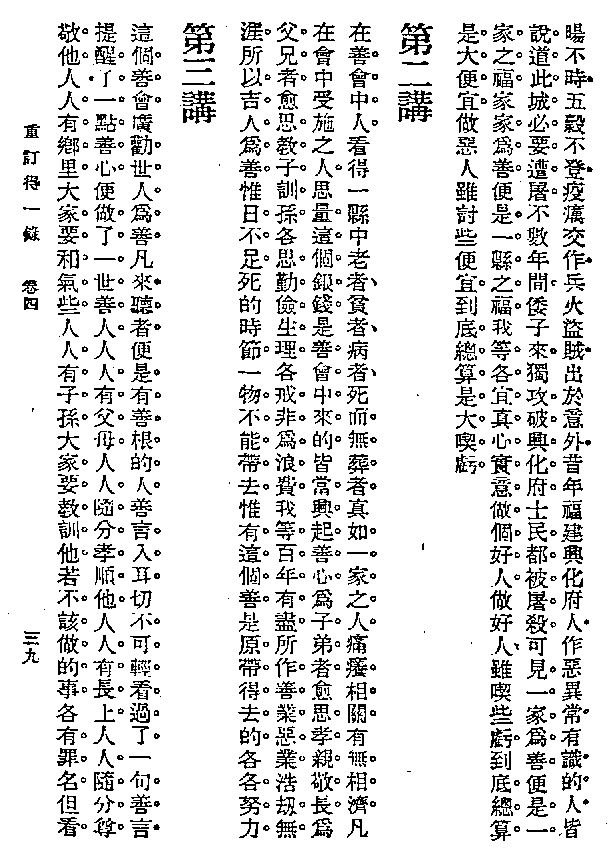 暘不時五穀不登疫癘交作兵火盜賊出於意外昔年福建興化府人作惡異常有識的人皆
說道此城必要遭屠不數年間倭子來獨攻破興化府士民都被屠殺可見一家爲善便是一
家之福家家爲善便是一縣之福我等各宜真心實意做個好人做好人雖喫些虧到底總算
是大便宜做惡人雖討些便宜到底總算是大喫虧
第二講
在善會中人看得一縣中老者、貧者、病者、死而無葬者真如一家之人痛癢相關有無相濟凡
在會中受施之人思量這個銀錢是善會中來的皆當興起善心爲子弟者愈思孝親敬長爲
父兄者愈思教子訓孫各思勤儉生理各戒非爲浪費我等百年有盡所作善業惡業浩刧無
涯所以吉人爲善惟日不足死的時節一物不能帶去惟有這個善是原帶得去的各各努力
第三講
這個善會廣勸世人爲善凡來聽者便是有善根的人善言入耳切不可輕看過了一句善言
提醒了一點善心便做了一世善人人人有父母人人隨分孝順他人人有長上人人隨分尊
敬他人人有鄉里大家要和氣些人人有子孫大家要教訓他若不該做的事各有罪名但看
重訂得一錄 卷四 三九